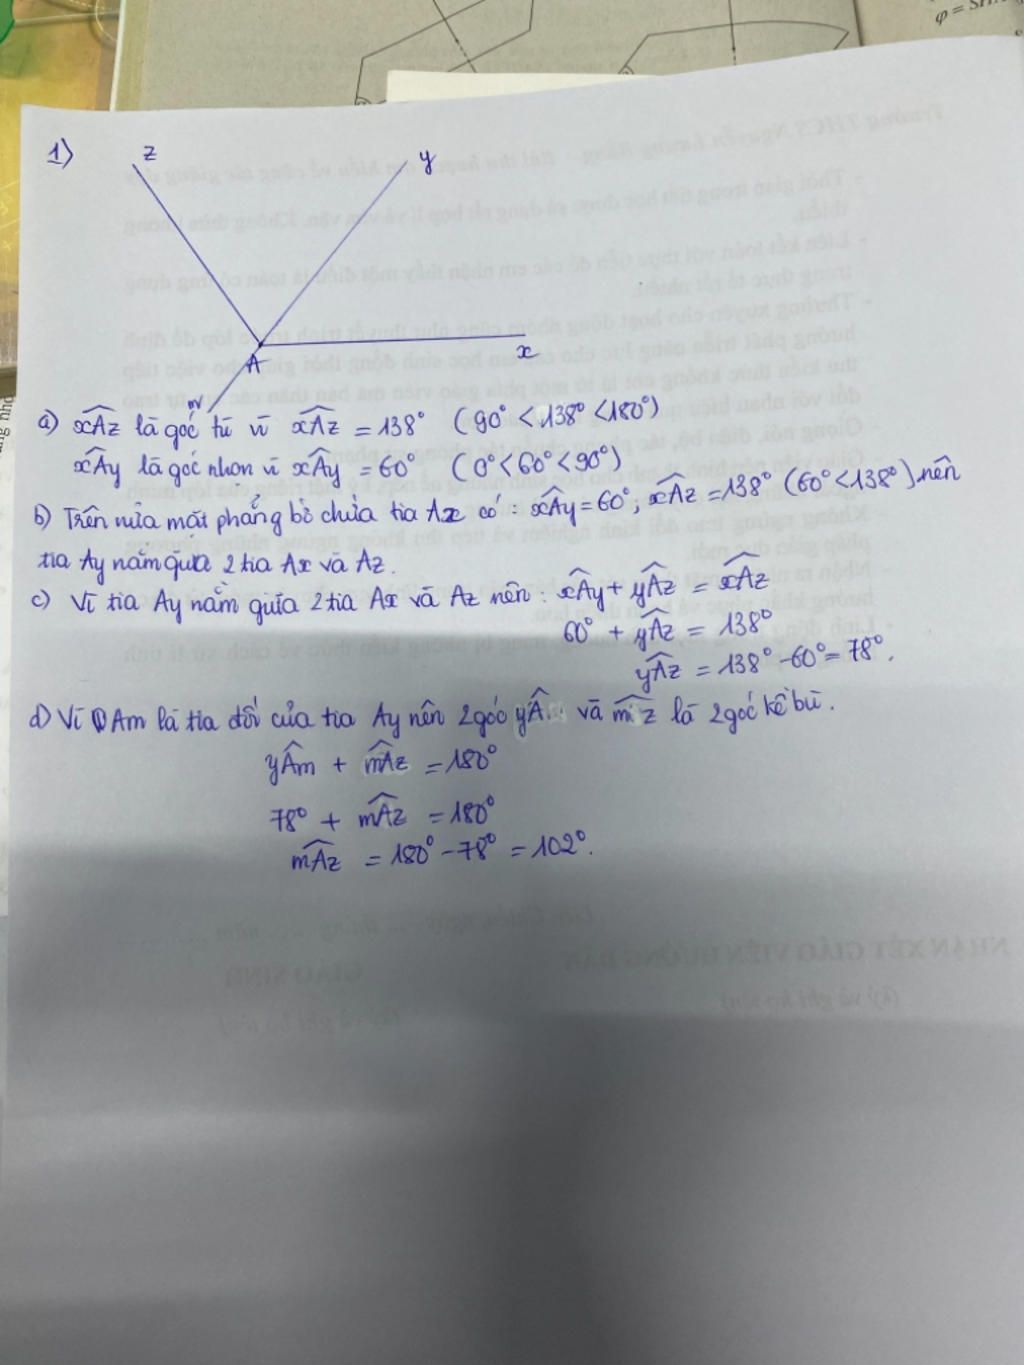 φ =
1)
z
y
A
x
m
a) xÂz là góc tù vì xÂz = 138° (90° < 138° < 180°)
xÂy là góc nhọn vì xÂy = 60° (0° < 60° < 90°)
b) Trên nửa mặt phẳng bờ chứa tia Ax có : xÂy = 60°, xÂz = 138° (60° < 138°) nên
tia Ay nằm giữa 2 tia Ax và Az.
c) Vì tia Ay nằm giữa 2 tia Ax và Az nên : xÂy + yÂz = xÂz
60° + yÂz = 138°
yÂz = 138° - 60° = 78°.
d) Vì Am là tia đối của tia Ay nên 2 góc yÂ và m z là 2 góc kề bù.
yÂm + mÂz = 180°
78° + mÂz = 180°
mÂz = 180° - 78° = 102°.